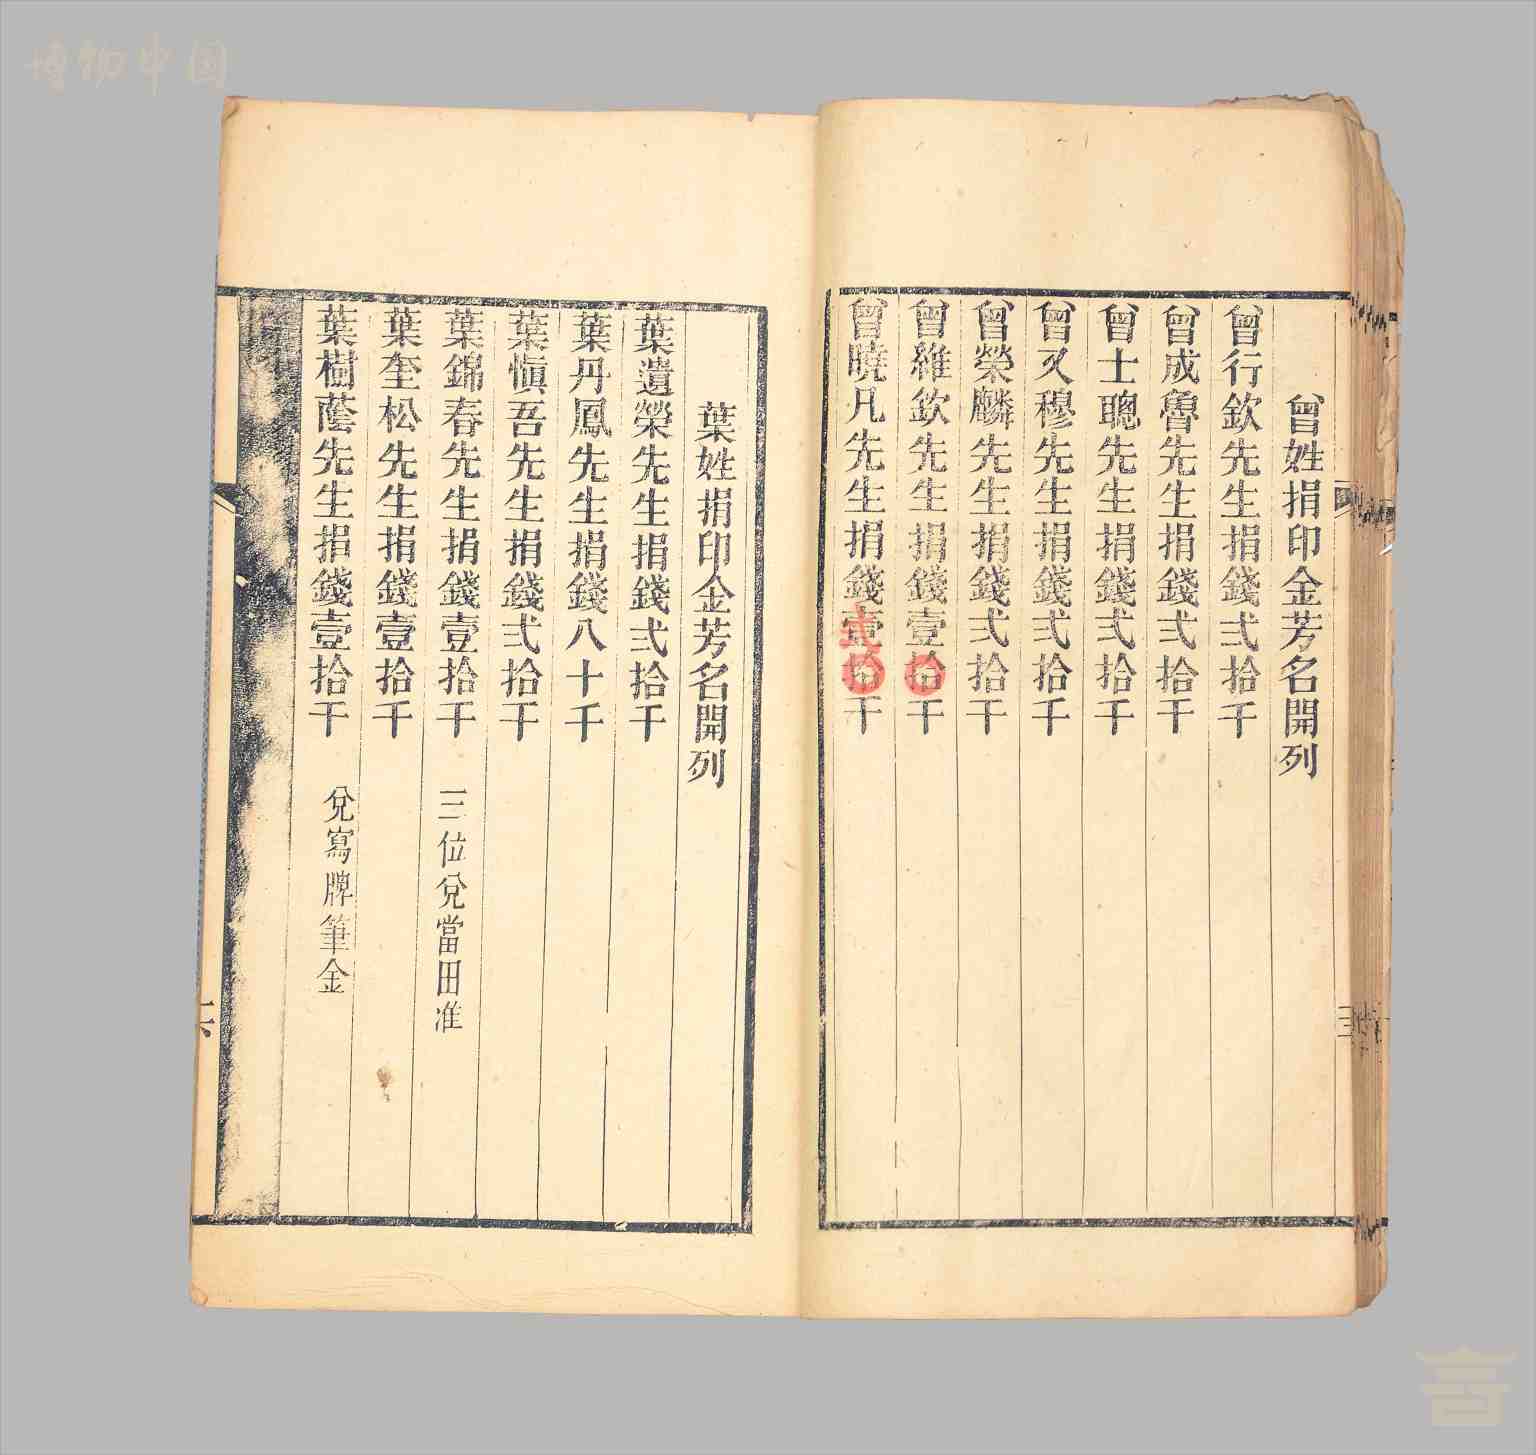 曾姓捐印金芳名開列
曾行欽先生捐錢弍拾千
曾成魯先生捐錢弍拾千
曾士聰先生捐錢弍拾千
曾又穆先生捐錢弍拾千
曾榮麟先生捐錢弍拾千
曾維欽先生捐錢壹拾千
曾曉凡先生捐錢壹拾千
葉姓捐印金芳名開列
葉遺榮先生捐錢弍拾千
葉丹鳳先生捐錢八十千
葉慎吾先生捐錢弍拾千
葉錦春先生捐錢壹拾千 三位兌當田准
葉奎松先生捐錢壹拾千
葉樹蔭先生捐錢壹拾千 兌寫牌筆金
博物中国